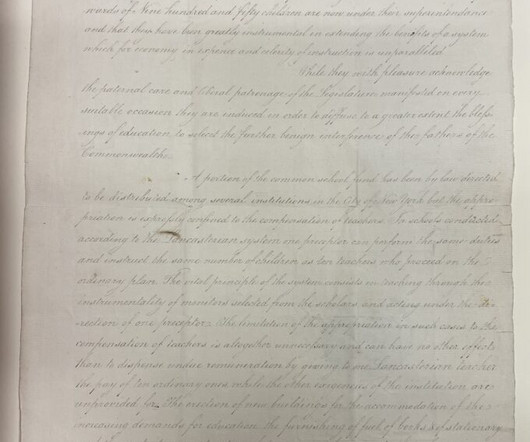 wards of Nine hundred and fifty children are now under their superintendance
and that they have been greatly instrumental in extending the benefits of a system
which for economy in expence and celerity of instruction is unparalleled
While they with pleasure acknowledge
the paternal care and liberal patronage of the Legislature manifested on every
suitable occasion they are induced in order to diffuse to a greater extent the bless
ings of education, to solicit the further benign interference of the fathers of the
Commonwealth.
A portion of the common school fund has been by law directed
to be distributed among several institutions in the City of New York but the appro
priation is expressly confined to the compensation of teachers. In schools conducted
according to the Lancasterian system one preceptor can perform the same duties
and instruct the same number of children as ten teachers who proceed on the
ordinary plan. The vital principle of the system consists in teaching through the
instrumentality of monitors selected from the scholars and acting under the di
rection of one preceptor. The limitation of the appropriation in such cases to the
compensation of teachers is altogether unnecessary and can have no other effect
than to dispense undue remuneration by giving to one Lancasterian teacher
the pay of ten ordinary ones while the other exigencies of the institution are
unprovided for. The erection of new buildings for the accommodation of the
increasing demands for education the furnishing of fuel of books & of stationary